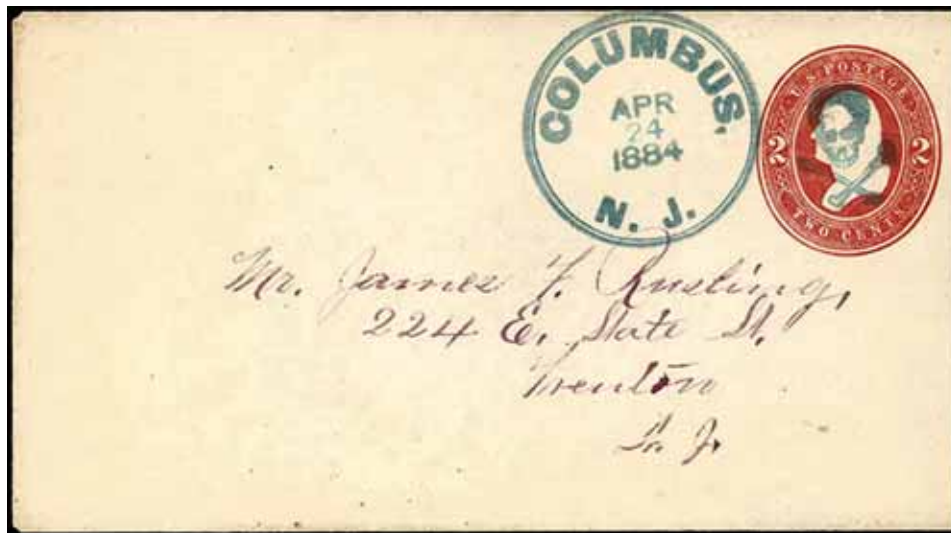 COLUMBUS,
APR
24
1884
N. J.
U.S. POSTAGE
2 2
TWO CENTS
Mr. James F. Rusling,
224 E. State St.
Trenton
N. J.